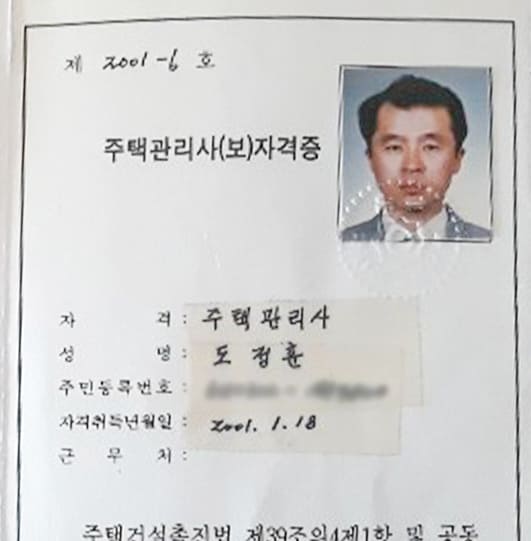 제 2001-6 호
주택관리사(보)자격증
자 격 : 주택관리사
성 명 : 도정훈
주민등록번호 :
자격취득년월일 : 2001. 1. 18
근 무 처 :
주택건설촉진법 제39조의4제1항 및 공동